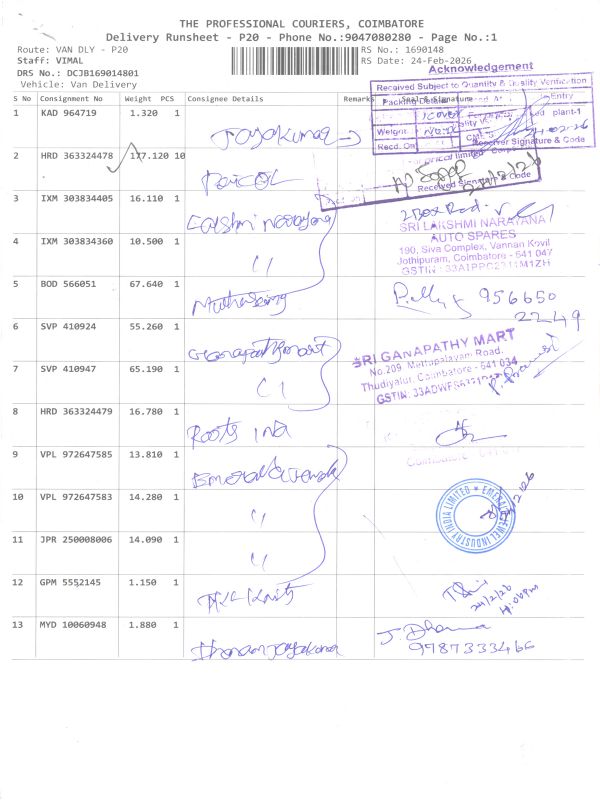 THE PROFESSIONAL COURIERS, COIMBATORE
Delivery Runsheet - P20 - Phone No.:9047080280 - Page No.:1
Route: VAN DLY - P20
RS No.: 1690148
Staff: VIMAL
RS Date: 24-Feb-2026
DRS No.: DCJB169014801
Acknowledgement
Vehicle: Van Delivery
Received Subject to Quantity & Quality Verification
S No Consignment No Weight PCS Consignee Details Remarks Seal & Signature
1 KAD 964719 1.320 1 Jayakumar
Weight
Recd. On
Receiver Signature & Code
2 HRD 363324478 177.120 10 Pricol
Received Signature & Code
3 IXM 303834405 16.110 1 Lakshmi Narayana
2 Box Recd.
SRI LAKSHMI NARAYANA
AUTO SPARES
190, Siva Complex, Vannan Kovil
Jothipuram, Coimbatore - 641 047
4 IXM 303834360 10.500 1 "
5 BOD 566051 67.640 1
956650
2249
6 SVP 410924 55.260 1 Ganapathy mart
SRI GANAPATHY MART
No.209, Mettupalayam Road,
Thudiyalur, Coimbatore - 641 034
7 SVP 410947 65.190 1 "
8 HRD 363324479 16.780 1 Roots ind
9 VPL 972647585 13.810 1
10 VPL 972647583 14.280 1 "
EMERALD JEWEL INDUSTRY INDIA LIMITED
11 JPR 250008006 14.090 1 "
12 GPM 5552145 1.150 1
24/2/26
13 MYD 10060948 1.880 1
J. Dharma
9787333466